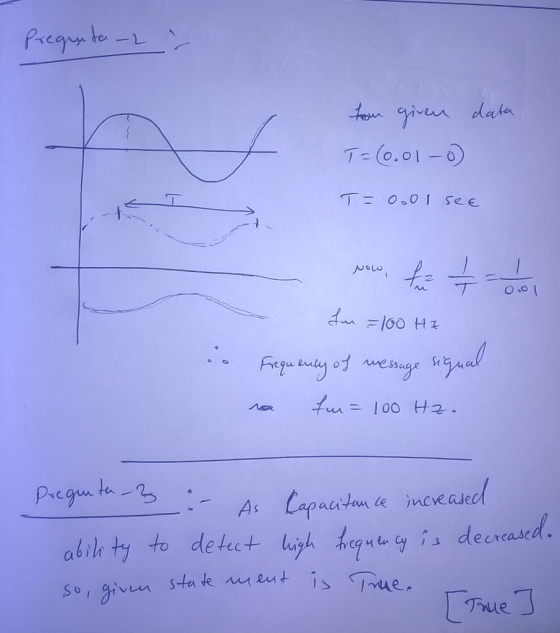 Pregunta-2 :-
given data
T = (0.01 - 0)
T = 0.01 sec
T
Now, fm = 1/T = 1/0.01
fm = 100 Hz
∴ Frequency of message signal
fm = 100 Hz.
Pregunta-3 :- As Capacitance increased
ability to detect high frequency is decreased.
so, given statement is True.
[True]